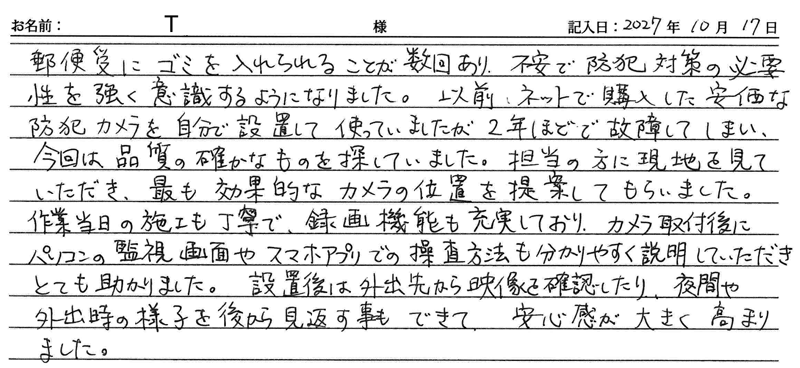 お名前： T 様 記入日：2027年 10月 17日
郵便受にゴミを入れられることが数回あり、不安で防犯対策の必要
性を強く意識するようになりました。以前、ネットで購入した安価な
防犯カメラを自分で設置して使っていましたが2年ほどで故障してしまい、
今回は品質の確かなものを探していました。担当の方に現地を見て
いただき、最も効果的なカメラの位置を提案してもらいました。
作業当日の施工も丁寧で、録画機能も充実しており、カメラ取付後に
パソコンの監視画面やスマホアプリでの操直方法も分かりやすく説明していただき
とても助かりました。設置後は外出先から映像を確認したり、夜間や
外出時の様子を後から見返す事もできて、安心感が大きく高まり
ました。